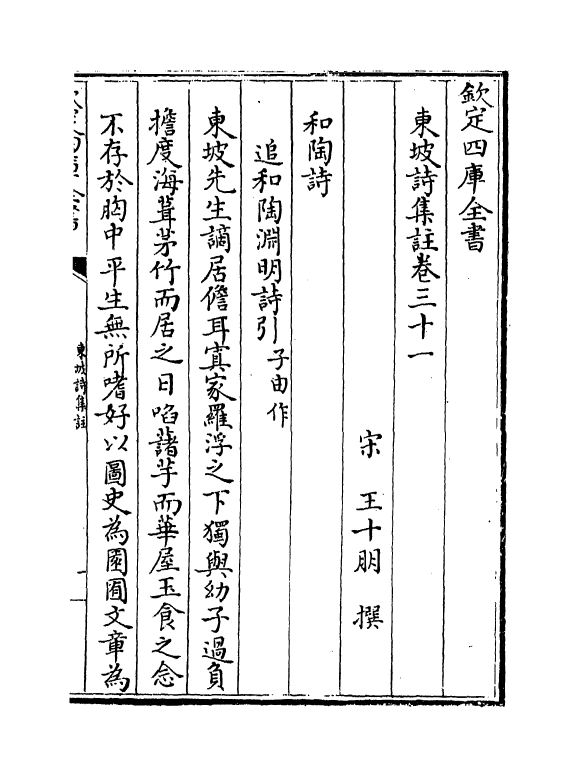 欽定四庫全書
東坡詩集註卷三十一
宋 王十朋 撰
和陶詩
追和陶淵明詩引子由作
東坡先生謫居儋耳寘家羅浮之下獨與幼子過負
擔度海葺茅竹而居之日啗藷芋而華屋玉食之念
不存於胸中平生無所嗜好以圖史為園囿文章為
東坡詩集註
一